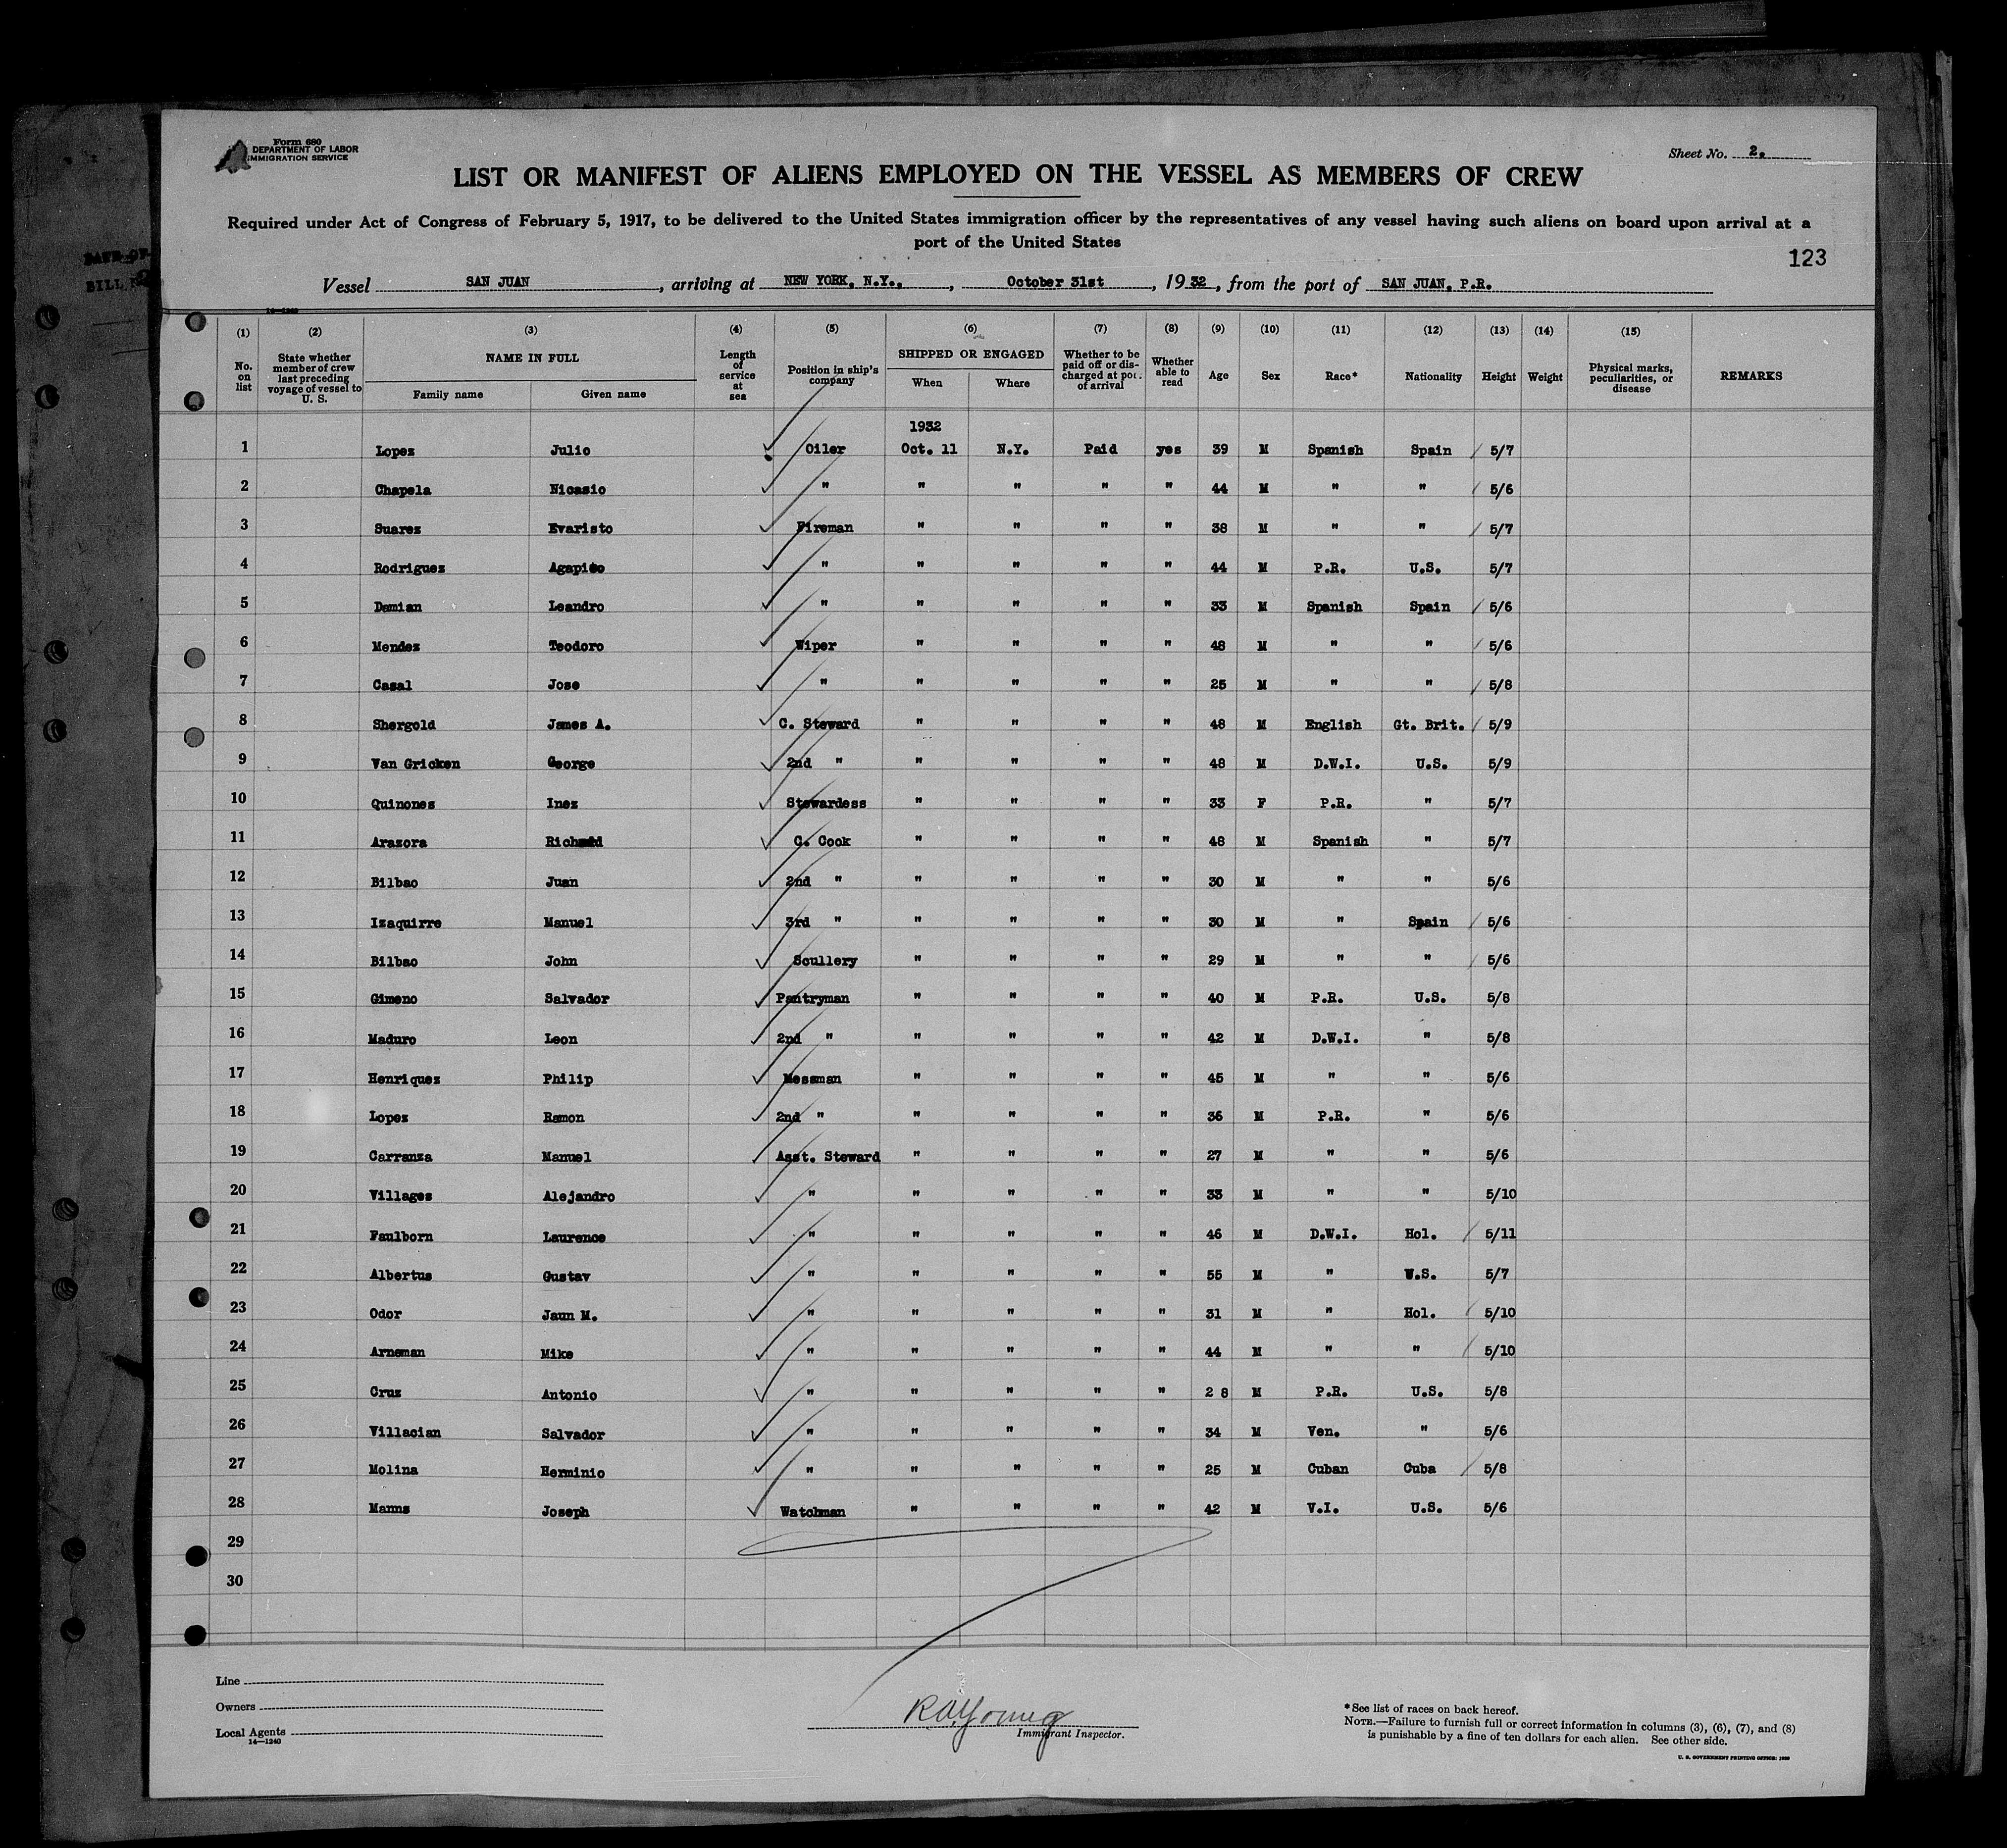 Form 680
DEPARTMENT OF LABOR
IMMIGRATION SERVICE
Sheet No. 2.
LIST OR MANIFEST OF ALIENS EMPLOYED ON THE VESSEL AS MEMBERS OF CREW
Required under Act of Congress of February 5, 1917, to be delivered to the United States immigration officer by the representatives of any vessel having such aliens on board upon arrival at a
port of the United States
123
Vessel SAN JUAN, arriving at NEW YORK, N.Y., , October 31st, 1932, from the port of SAN JUAN, P.R.
14—1240
(1) (2) (3) (4) (5) (6) (7) (8) (9) (10) (11) (12) (13) (14) (15)
No. on list State whether member of crew last preceding voyage of vessel to U. S. NAME IN FULL Family name Given name Length of service at sea Position in ship's company SHIPPED OR ENGAGED When Where Whether to be paid off or discharged at port of arrival Whether able to read Age Sex Race* Nationality Height Weight Physical marks, peculiarities, or disease REMARKS
1932
1 Lopez Julio Oiler Oct. 11 N.Y. Paid yes 39 M Spanish Spain 5/7
2 Chapela Nicasio " " " " " 44 M " " 5/6
3 Suarez Evaristo Fireman " " " " 38 M " " 5/7
4 Rodriguez Agapito " " " " " 44 M P.R. U.S. 5/7
5 Damian Leandro " " " " " 33 M Spanish Spain 5/6
6 Mendez Teodoro Wiper " " " " 48 M " " 5/6
7 Casal Jose " " " " " 25 M " " 5/8
8 Shergold James A. C. Steward " " " " 48 M English Gt. Brit. 5/9
9 Van Gricken George 2nd " " " " " 48 M D.W.I. U.S. 5/9
10 Quinones Inez Stewardess " " " " 33 F P.R. " 5/7
11 Arazora Richard C. Cook " " " " 48 M Spanish " 5/7
12 Bilbao Juan 2nd " " " " " 30 M " " 5/6
13 Izaquirre Manuel 3rd " " " " " 30 M " Spain 5/6
14 Bilbao John Scullery " " " " 29 M " " 5/6
15 Gimeno Salvador Pantryman " " " " 40 M P.R. U.S. 5/8
16 Maduro Leon 2nd " " " " " 42 M D.W.I. " 5/8
17 Henriquez Philip Messman " " " " 45 M " " 5/6
18 Lopez Ramon 2nd " " " " " 36 M P.R. " 5/6
19 Carranza Manuel Asst. Steward " " " " 27 M " " 5/6
20 Villages Alejandro " " " " " 33 M " " 5/10
21 Faulborn Laurence " " " " " 46 M D.W.I. Hol. 5/11
22 Albertus Gustav " " " " " 55 M " U.S. 5/7
23 Odor Jaun M. " " " " " 31 M " Hol. 5/10
24 Arneman Mike " " " " " 44 M " " 5/10
25 Cruz Antonio " " " " " 2 8 M P.R. U.S. 5/8
26 Villacian Salvador " " " " " 34 M Ven. " 5/6
27 Molina Herminio " " " " " 25 M Cuban Cuba 5/8
28 Manns Joseph Watchman " " " " 42 M V.I. U.S. 5/6
29
30
Line
Owners
Local Agents
14—1240
R.A. Young
Immigrant Inspector.
*See list of races on back hereof.
NOTE.—Failure to furnish full or correct information in columns (3), (6), (7), and (8)
is punishable by a fine of ten dollars for each alien. See other side.